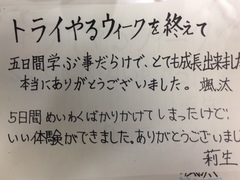 トライやるウィークを終えて
五日間学ぶ事だらけで、とても成長出来ました
本当にありがとうございました。颯汰
5日間めいわくばかりかけてしまったけど、
いい体験ができました。ありがとうございまし
莉生